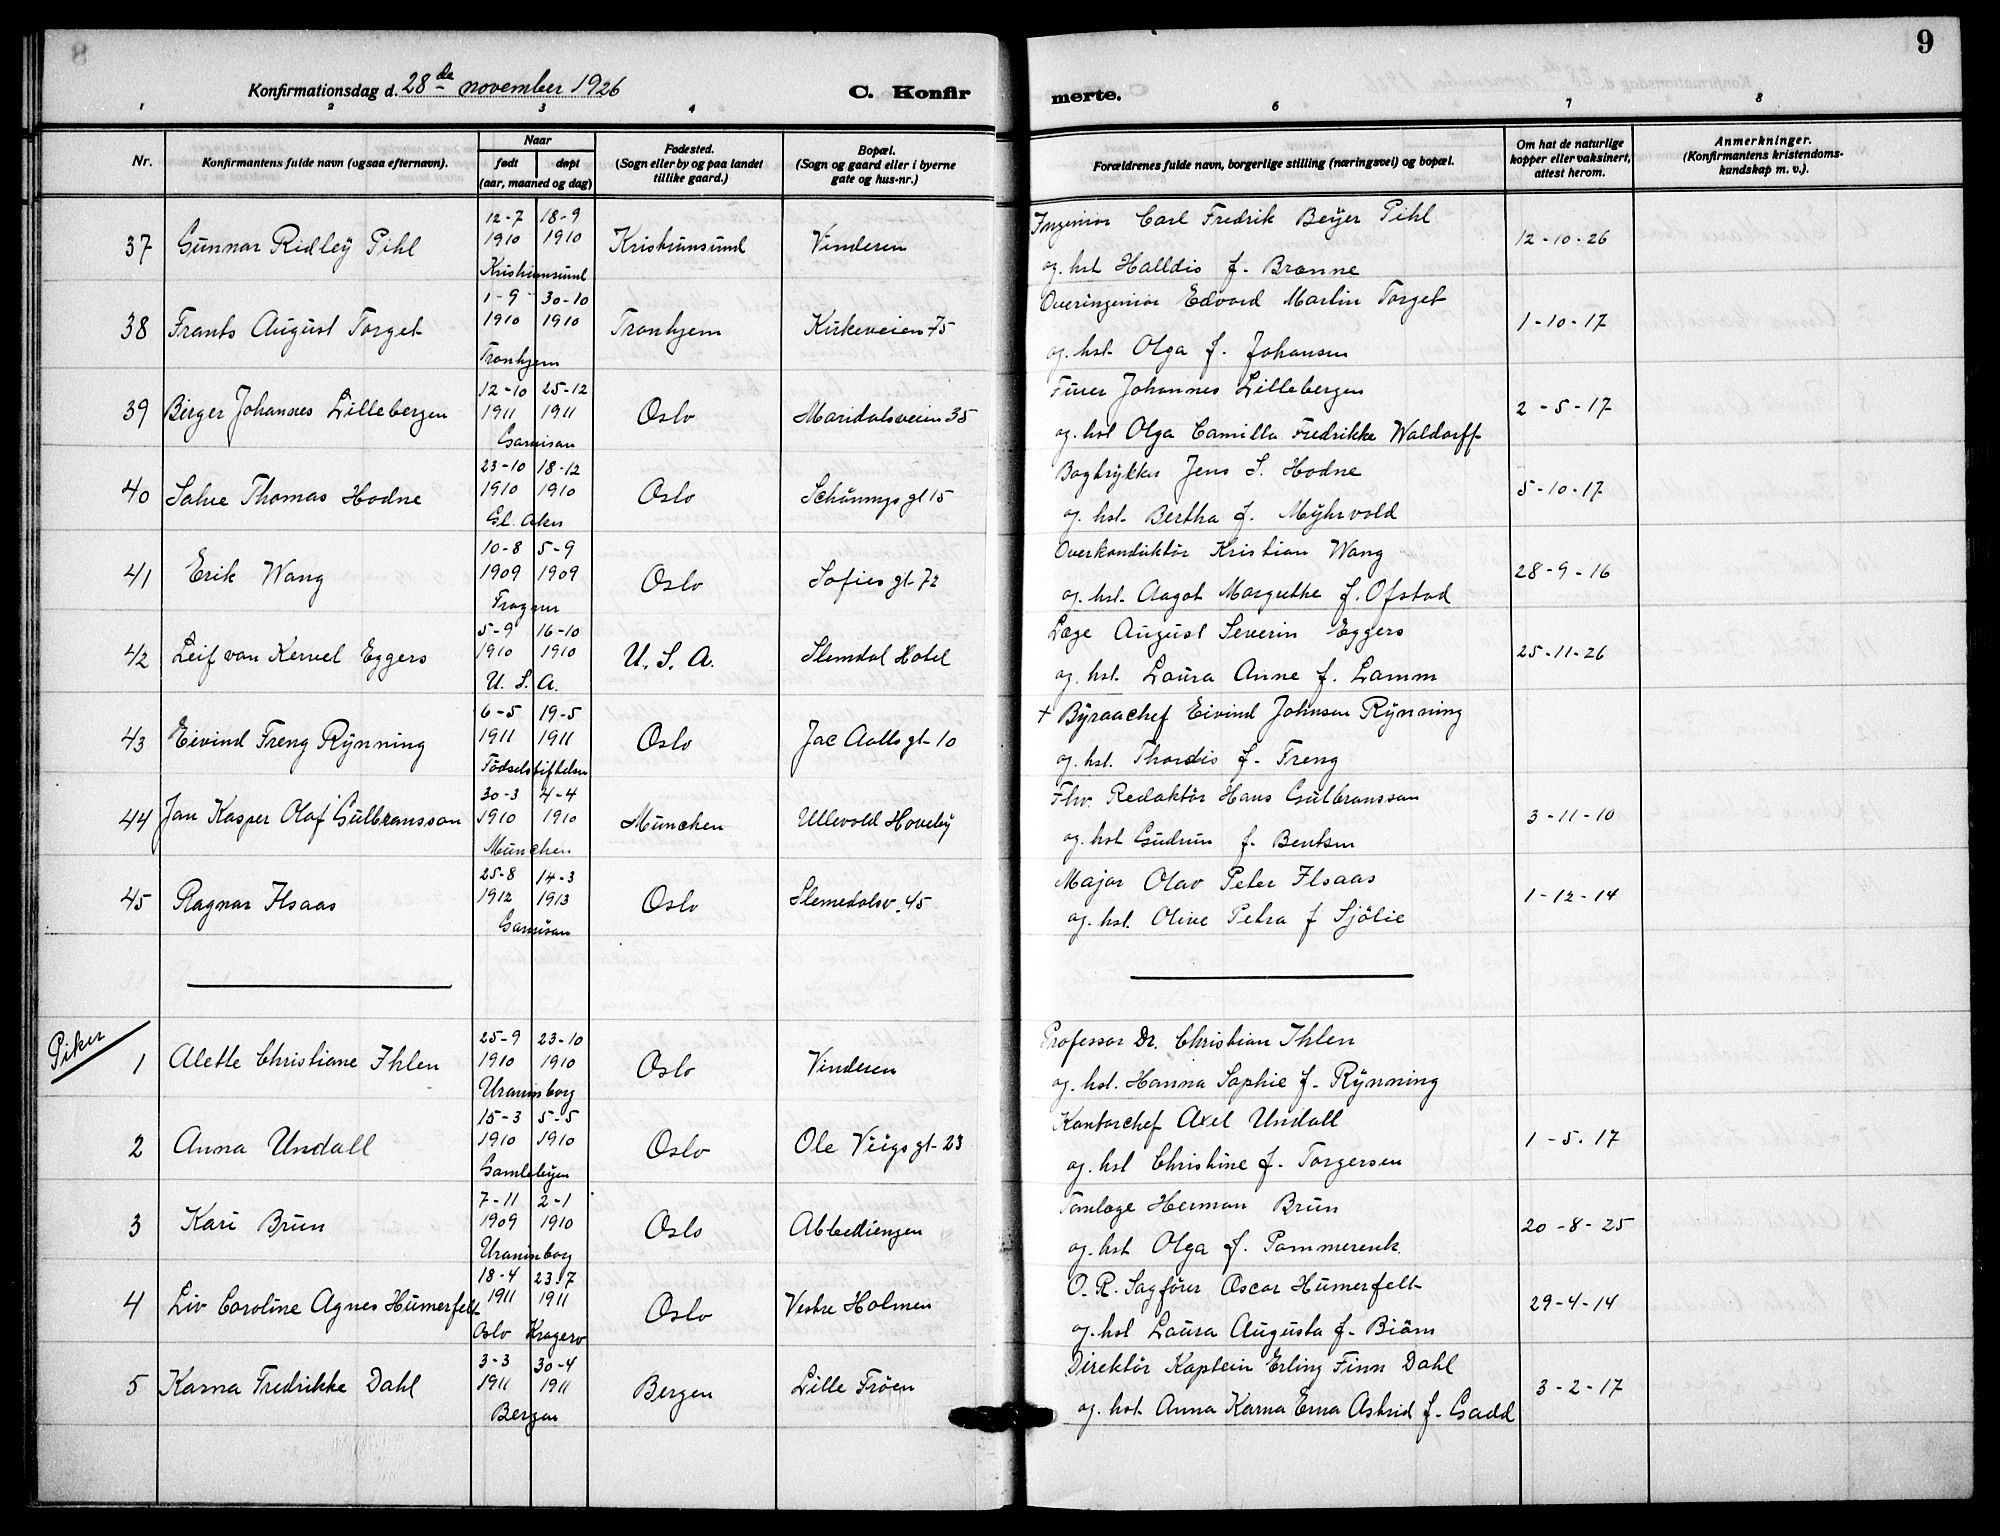 9
Konfirmationsdag d. 28de november 1926
C. Konfirmerte.
1 2 3 4 6 7 8
Nr. Konfirmantens fulde navn (ogsaa efternavn). Naar født døpt (aar, maaned og dag) Fødested. (Sogn eller by og paa landet tillike gaard.) Bopæl. (Sogn og gaard eller i byerne gate og hus-nr.) Forældrenes fulde navn, borgerlige stilling (næringsvei) og bopæl. Om hat de naturlige kopper eller vaksinert, attest herom. Anmerkninger. (Konfirmantens kristendoms-kundskap m. v.).
12-7 18-9 Ingeniør Carl Fredrik Beyer Pihl
37 Gunnar Ridley Pihl 1910 1910 Kristiansund Vinderen 12-10-26
Kristiansund og hst Halldis f. Brænne
1-9 30-10 Overingeniør Edvard Martin Torget
38 Frants August Torget 1910 1910 Tronhjem Kirkeveien 75 1-10-17
Tronhjem og. hst. Olga f. Johansen
12-10 25-12 Furer Johannes Lillebergen
39 Birger Johannes Lillebergen 1911 1911 Oslo Maridalsveien 35 2-5-17
Garnison og. hst Olga Camilla Fredrikke Waldorff
23-10 18-12 Bogtrykker Jens S. Hodne
40 Salve Thomas Hodne 1910 1910 Oslo Schønings gt 15 5-10-17
Gl. Aker og. hst. Bertha f. Myhrvold
10-8 5-9 Overkonduktör Kristian Wang
41 Erik Wang 1909 1909 Oslo Sofies gt 72 28-9-16
Frogner og. hst. Aagot Margrethe f. Ofstad
5-9 16-10 Læge August Severin Eggers
42 Leif van Kervel Eggers 1910 1910 U. S. A. Slemdal Hotel 25-11-26
U. S. A. og. hst. Laura Anne f. Lamm
6-5 19-5 + Byraachef Eivind Johnsen Rynning
43 Eivind Freng Rynning 1911 1911 Oslo Jac Aalls gt 10
Födselstiftelsen og. hst. Thordis f. Freng
30-3 4-4 Fhv. Redaktör Hans Gulbransson
44 Jan Kasper Olaf Gulbransson 1910 1910 München Ullevold Haveby 3-11-10
München og. hst Gudrun f. Bentsen
25-8 14-3 Major Olav Peter Ilsaas
45 Ragnar Ilsaas 1912 1913 Oslo Slemedalsv. 45 1-12-14
Garnison og. hst. Olive Petra f Sjölie
Piker
25-9 23-10 Professor Dr. Christian Ihlen
1 Alette Christiane Ihlen 1910 1910 Oslo Vinderen
Uranienborg og. hst. Hanna Sophie f. Rynning
15-3 5-5 Kontorchef Axel Undall
2 Anna Undall 1910 1910 Oslo Ole Vigs gt 23 1-5-17
Gamlebyen og. hst Christine f. Torgersen
7-11 2-1 Tanlæge Herman Brun
3 Kari Brun 1909 1910 Oslo Abbediengen 20-8-25
Uranienborg og. hst Olga f. Pommerenk.
18-4 23-7 O. R. Sagförer Oscar Humerfelt
4 Liv Caroline Agnes Humerfelt 1911 1911 Oslo Vestre Holmen 29-4-14
Oslo Kragerø og. hst Laura Augusta f. Biörn
3-3 30-4 Direktör Kaptein Erling Finn Dahl
5 Karna Fredrikke Dahl 1911 1911 Bergen Lille Fröen 3-2-17
Bergen og. hst. Anna Karna Erna Astrid f. Gadd